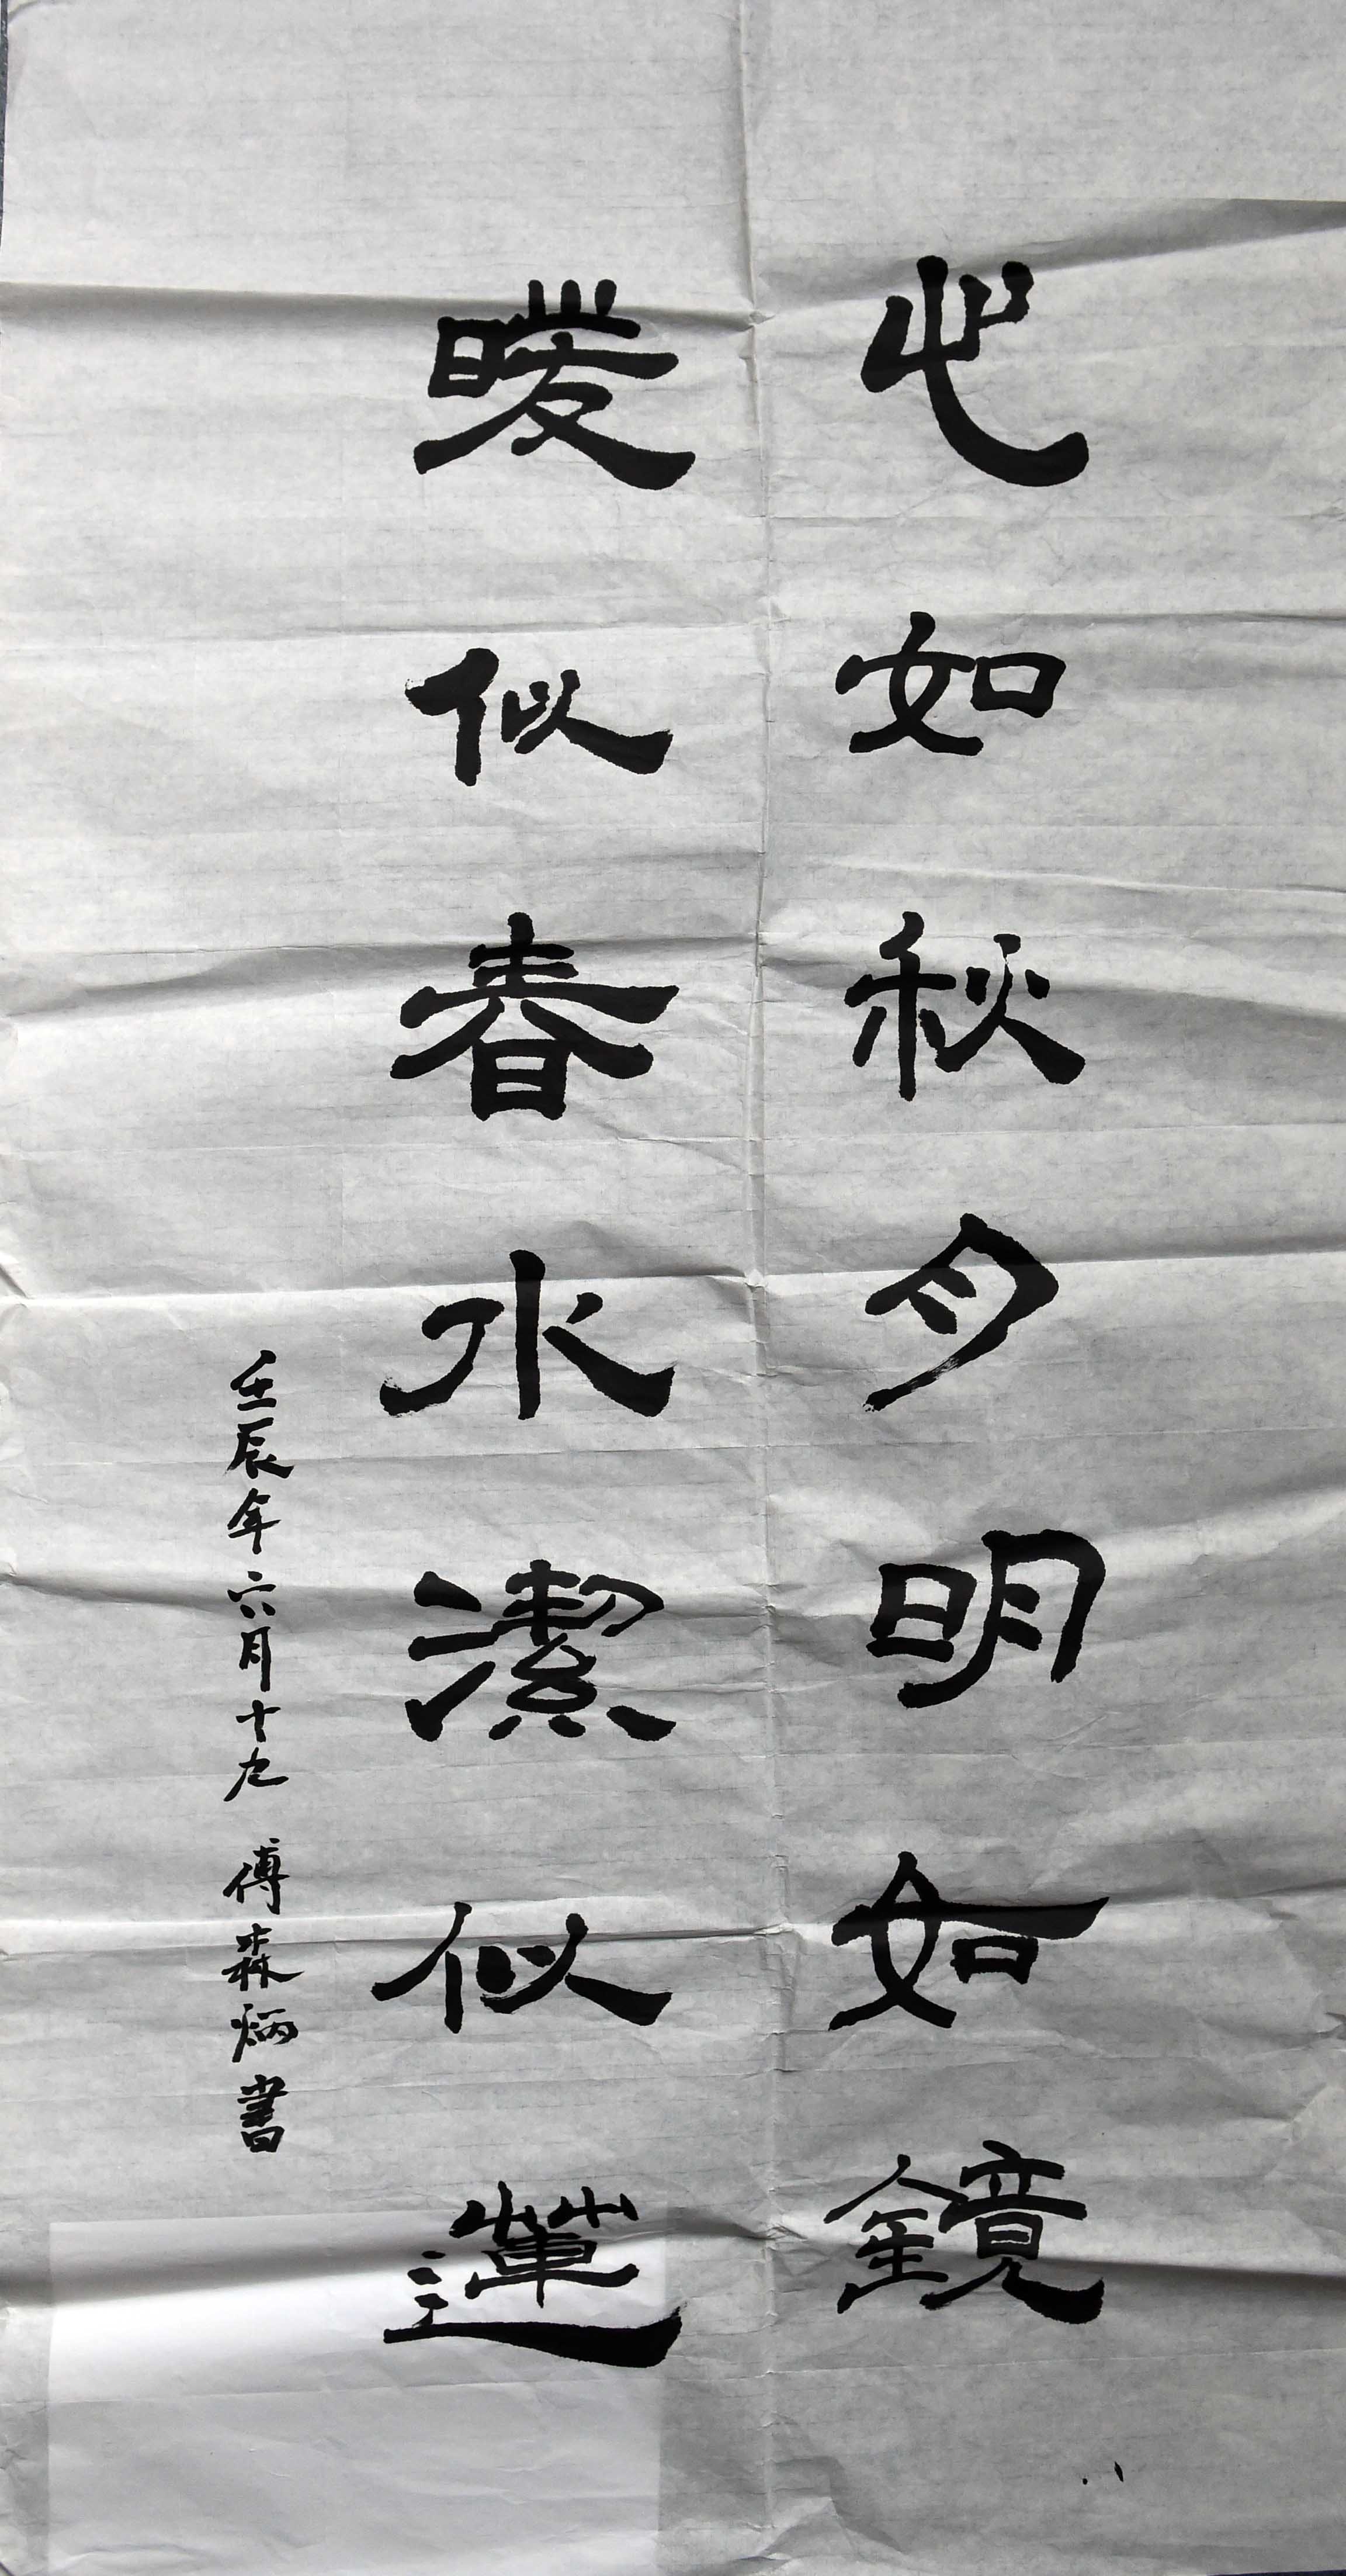 心如秋月明如鏡
暖似春水潔似蓮
壬辰年六月十九 傅森炳書